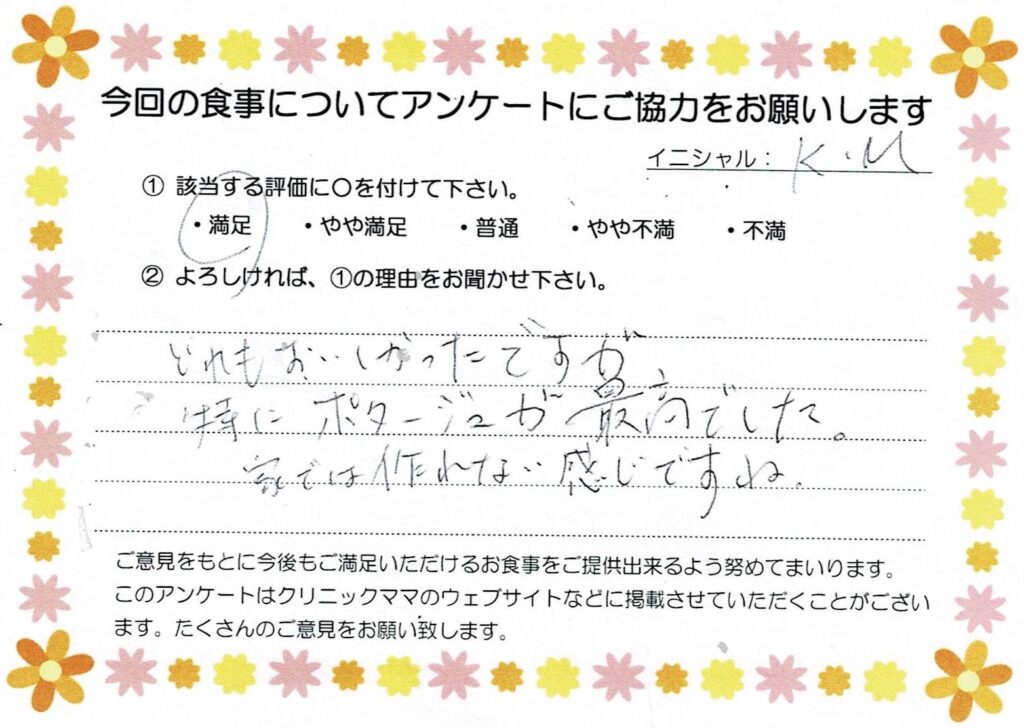 今回の食事についてアンケートにご協力をお願いします
イニシャル： K.M
① 該当する評価に〇を付けて下さい。
・満足 ・やや満足 ・普通 ・やや不満 ・不満
② よろしければ、①の理由をお聞かせ下さい。
どれもおいしかったですが
特にポタージュが最高でした。
家では作れない感じですね。
ご意見をもとに今後もご満足いただけるお食事をご提供出来るよう努めてまいります。
このアンケートはクリニックママのウェブサイトなどに掲載させていただくことがござい
ます。たくさんのご意見をお願い致します。